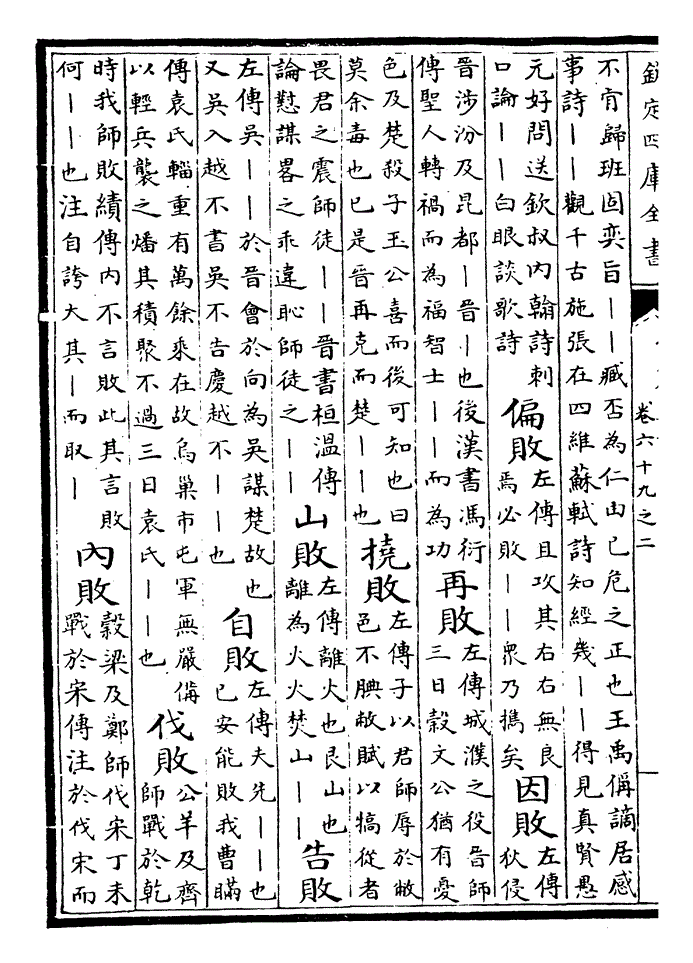 欽定四庫全書
卷六十九之二
不肯歸班固奕旨丨丨臧否為仁由己危之正也王禹偁謫居感
事詩丨丨觀千古施張在四維蘇軾詩知經幾丨丨得見真賢愚
元好問送欽叔內翰詩刺
口論丨丨白眼談歌詩
偏敗
左傳且攻其右右無良
焉必敗丨丨衆乃攜矣
因敗
左傳
狄侵
晉涉汾及昆都丨晉丨也後漢書馮衍
傳聖人轉禍而為福智士丨丨而為功
再敗
左傳城濮之役晉師
三日穀文公猶有憂
色及楚殺子玉公喜而後可知也曰
莫余毒也已是晉再克而楚丨丨也
撓敗
左傳子以君師辱於敝
邑不腆敝賦以犒從者
畏君之震師徒丨丨晉書桓溫傳
論懟謀畧之乖違恥師徒之丨丨
山敗
左傳離火也艮山也
離為火火焚山丨丨
告敗
左傳吳丨丨於晉會於向為吳謀楚故也
又吳入越不書吳不告慶越不丨丨也
自敗
左傳夫先丨丨也
已安能敗我曹瞞
傳袁氏輜重有萬餘乘在故烏巢市屯軍無嚴備
以輕兵襲之燔其積聚不過三日袁氏丨丨也
伐敗
公羊及齊
師戰於乾
時我師敗績傳內不言敗此其言敗
何丨丨也注自誇大其丨而取丨
內敗
穀梁及鄭師伐宋丁未
戰於宋傳注於伐宋而